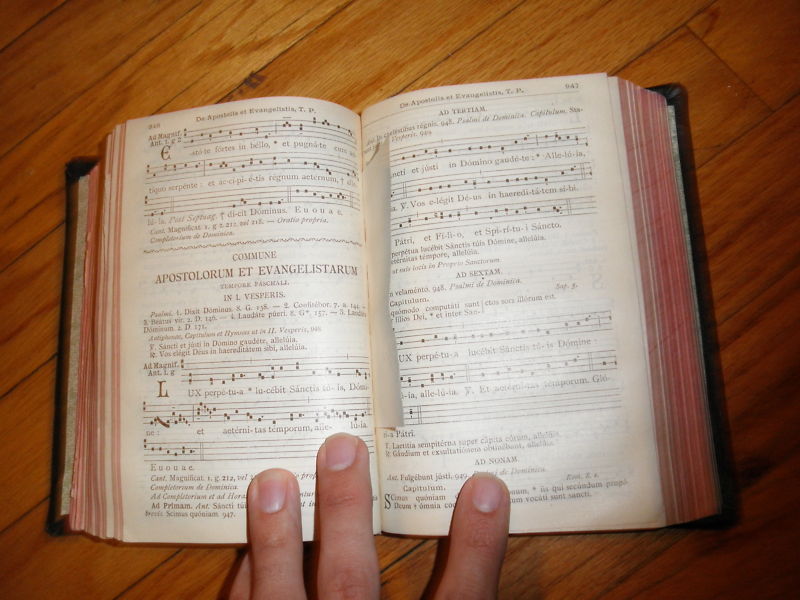 946
De Apostolis et Evangelistis, T. P.
Ad Magnif.
Ant. 1. g 2
E
stó-te fórtes in béllo, * et pugná-te cum
tíquo serpénte : et ac-ci-pi-é-tis régnum aetérnum, †
lú-ia. Post Septuag. † dí-cit Dóminus. E u o u a e.
Cant. Magníficat 1. g 2. 212, vel 218. — Oratio propria.
Completorium de Dominica.
COMMUNE
APOSTOLORUM ET EVANGELISTARUM
TEMPORE PASCHALI.
IN I. VESPERIS.
Psalmi. 1. Dixit Dóminus. 8. G. 138. — 2. Confitébor. 7. a. 144. —
3. Beátus vir. 2. D. 149. — 4. Laudáte púeri. 8. G*. 157. — 5. Laudáte
Dóminum. 2. D 171.
Antiphonae, Capitulum et Hymnus ut in II. Vesperis, 948
℣. Sáncti et jústi in Dómino gaudéte, allelúia.
℟. Vos elégit Déus in haereditátem síbi, allelúia.
Ad Magnif.
Ant. 1. g
L
UX perpé-tu-a * lu-cébit Sánctis tú-is, Dómi-
ne : et aetérni-tas témporum, alle- lú-ia.
E u o u a e.
Cant. Magníficat
Completorium de Dominica
Ad Completorium et ad Horas
Ad Primam. Ant. Sáncti
brevis Scimus quóniam 947.
947
De Apostolis et Evangelistis, T. P.
AD TERTIAM.
Ant. In caeléstibus régnis. 948. Psalmi de Dominica. Capitulum. Sta-
Vesperis. 949
ncti et jústi in Dómino gaudé-te : * Alle-lú-ia,
a. ℣. Vos e-légit Dé-us in haeredi-tá-tem sí-bi.
Pátri, et Fí-li-o, et Spi-rí-tu-i Sáncto.
perpétua lucébit Sánctis túis Dómine, allelúia.
etérnitas témpore, allelúia.
ut suis locis in Proprio Sanctorum
AD SEXTAM.
n velaménto. 948. Psalmi de Dominica.
Capitulum. Sap. 5.
quómodo computáti sunt
filios Dei, * et inter San-
ctos sors illórum est.
UX perpé-tu-a lucébit Sánctis tú-is Dómine :
-ia, alle-lú-ia. ℣. Et aetérni-tas témporum. Gló-
ri-a Pátri.
℣. Laetítia sempitérna súper cápita eórum, allelúia.
℟. Gáudium et exsultatiónem obtinébunt, allelúia.
AD NONAM.
Ant. Fulgébunt jústi. 949. Psalmi de Dominica.
Capitulum. Rom. 8. c.
Scimus quóniam
Deum † ómnia
, * iis qui secúndum propó-
vocáti sunt sancti.